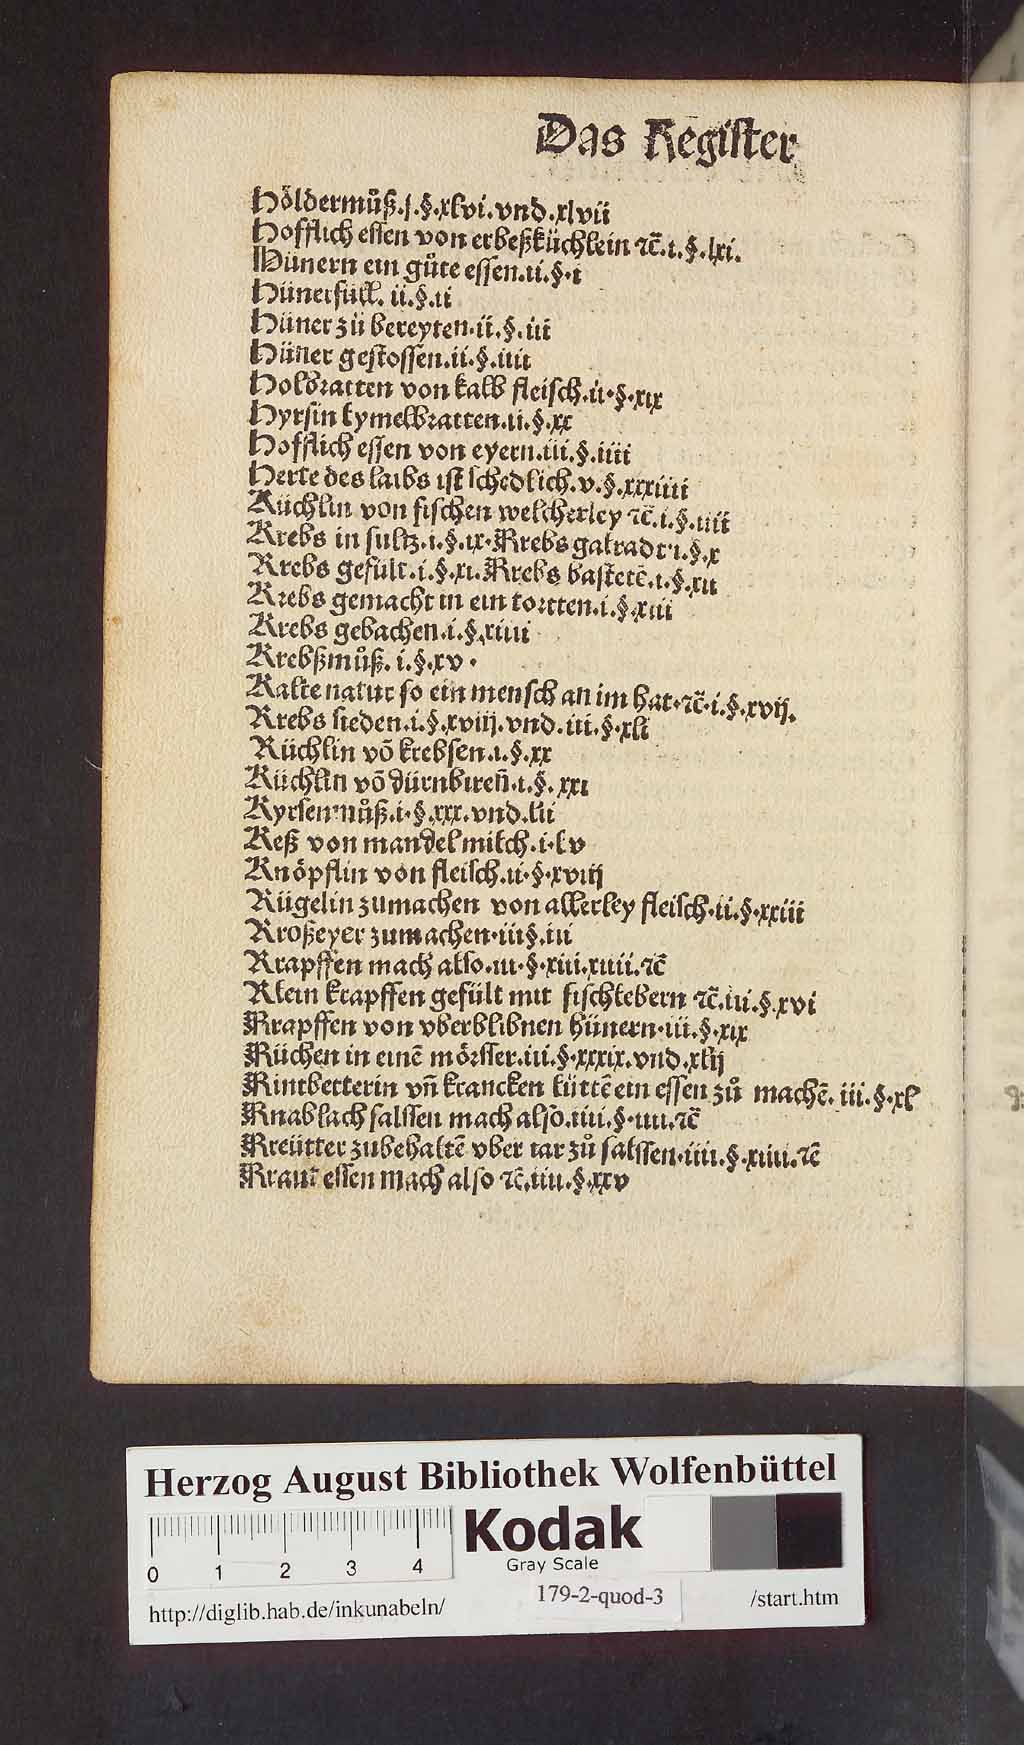 Das Regiſter
Höldermůß.j.§.xlvi.vnd.xlvii
Hofflich eſſen von erbeßküchlein ⁊c̄.i.§.lxi.
Hünern ein gůte eſſen.ii.§.i
Hünerfüll. ii.§.ii
Hüner zů bereyten.ii.§.iii
Hüner geſtoſſen.ii.§.iiii
Holbratten von kalb fleiſch.ii.§.xix
Hyrſin kymelbratten.ii.§.xx
Hofflich eſſen von eyern.iii.§.iiii
Herte des laibs iſt ſchedlich.v.§.xxxiiii
Küchlin von fiſchen welcherley ⁊c̄.i.§.iiii
Krebs in ſultz.i.§.ix.Krebs galradt.i.§.x
Krebs gefült.i.§.xi.Krebs baſtetē.i.§.xii
Krebs gemacht in ein tortten.i.§.xiii
Krebs gebachen.i.§.xiiii
Krebßmůß.i.§.xv.
Kalte natur ſo ein menſch an im hat.⁊c̄.i.§.xvij.
Krebs ſieden.i.§.xviij.vnd.iii.§.xli
Küchlin vō krebſen.i.§.xx
Küchlin vō dürnbireñ.i.§.xxi
Kyrſenmůß.i.§.xxx.vnd.lii
Keß von mandel milch.i.lv
Knöpflin von fleiſch.ii.§.xviij
Kügelin zumachen von allerley fleiſch.ii.§.xxiii
Kroßeyer zumachen.iii§.iii
Krapffen mach alſo.iii.§.xiii.xiiii.⁊c̄
Klein krapffen gefült mit fiſchlebern ⁊c̄.iii.§.xvi
Krapffen von vberblibnen hünern.iii.§.xix
Küchen in einē mörſſer.iii.§.xxxix.vnd.xlij
Kintbetterin vñ krancken küttē ein eſſen zů machē. iii.§.xl
Knablach ſalſſen mach alſo.iiii.§.iiii.⁊c̄
Kreütter zubehaltē vber iar zů ſalſſen.iiii.§.xiiii.⁊c̄
Kraut eſſen mach alſo ⁊c̄.iiii.§.xxv
Herzog August Bibliothek Wolfenbüttel
0 1 2 3 4
Kodak
Gray Scale
http://diglib.hab.de/inkunabeln/
179-2-quod-3
/start.htm